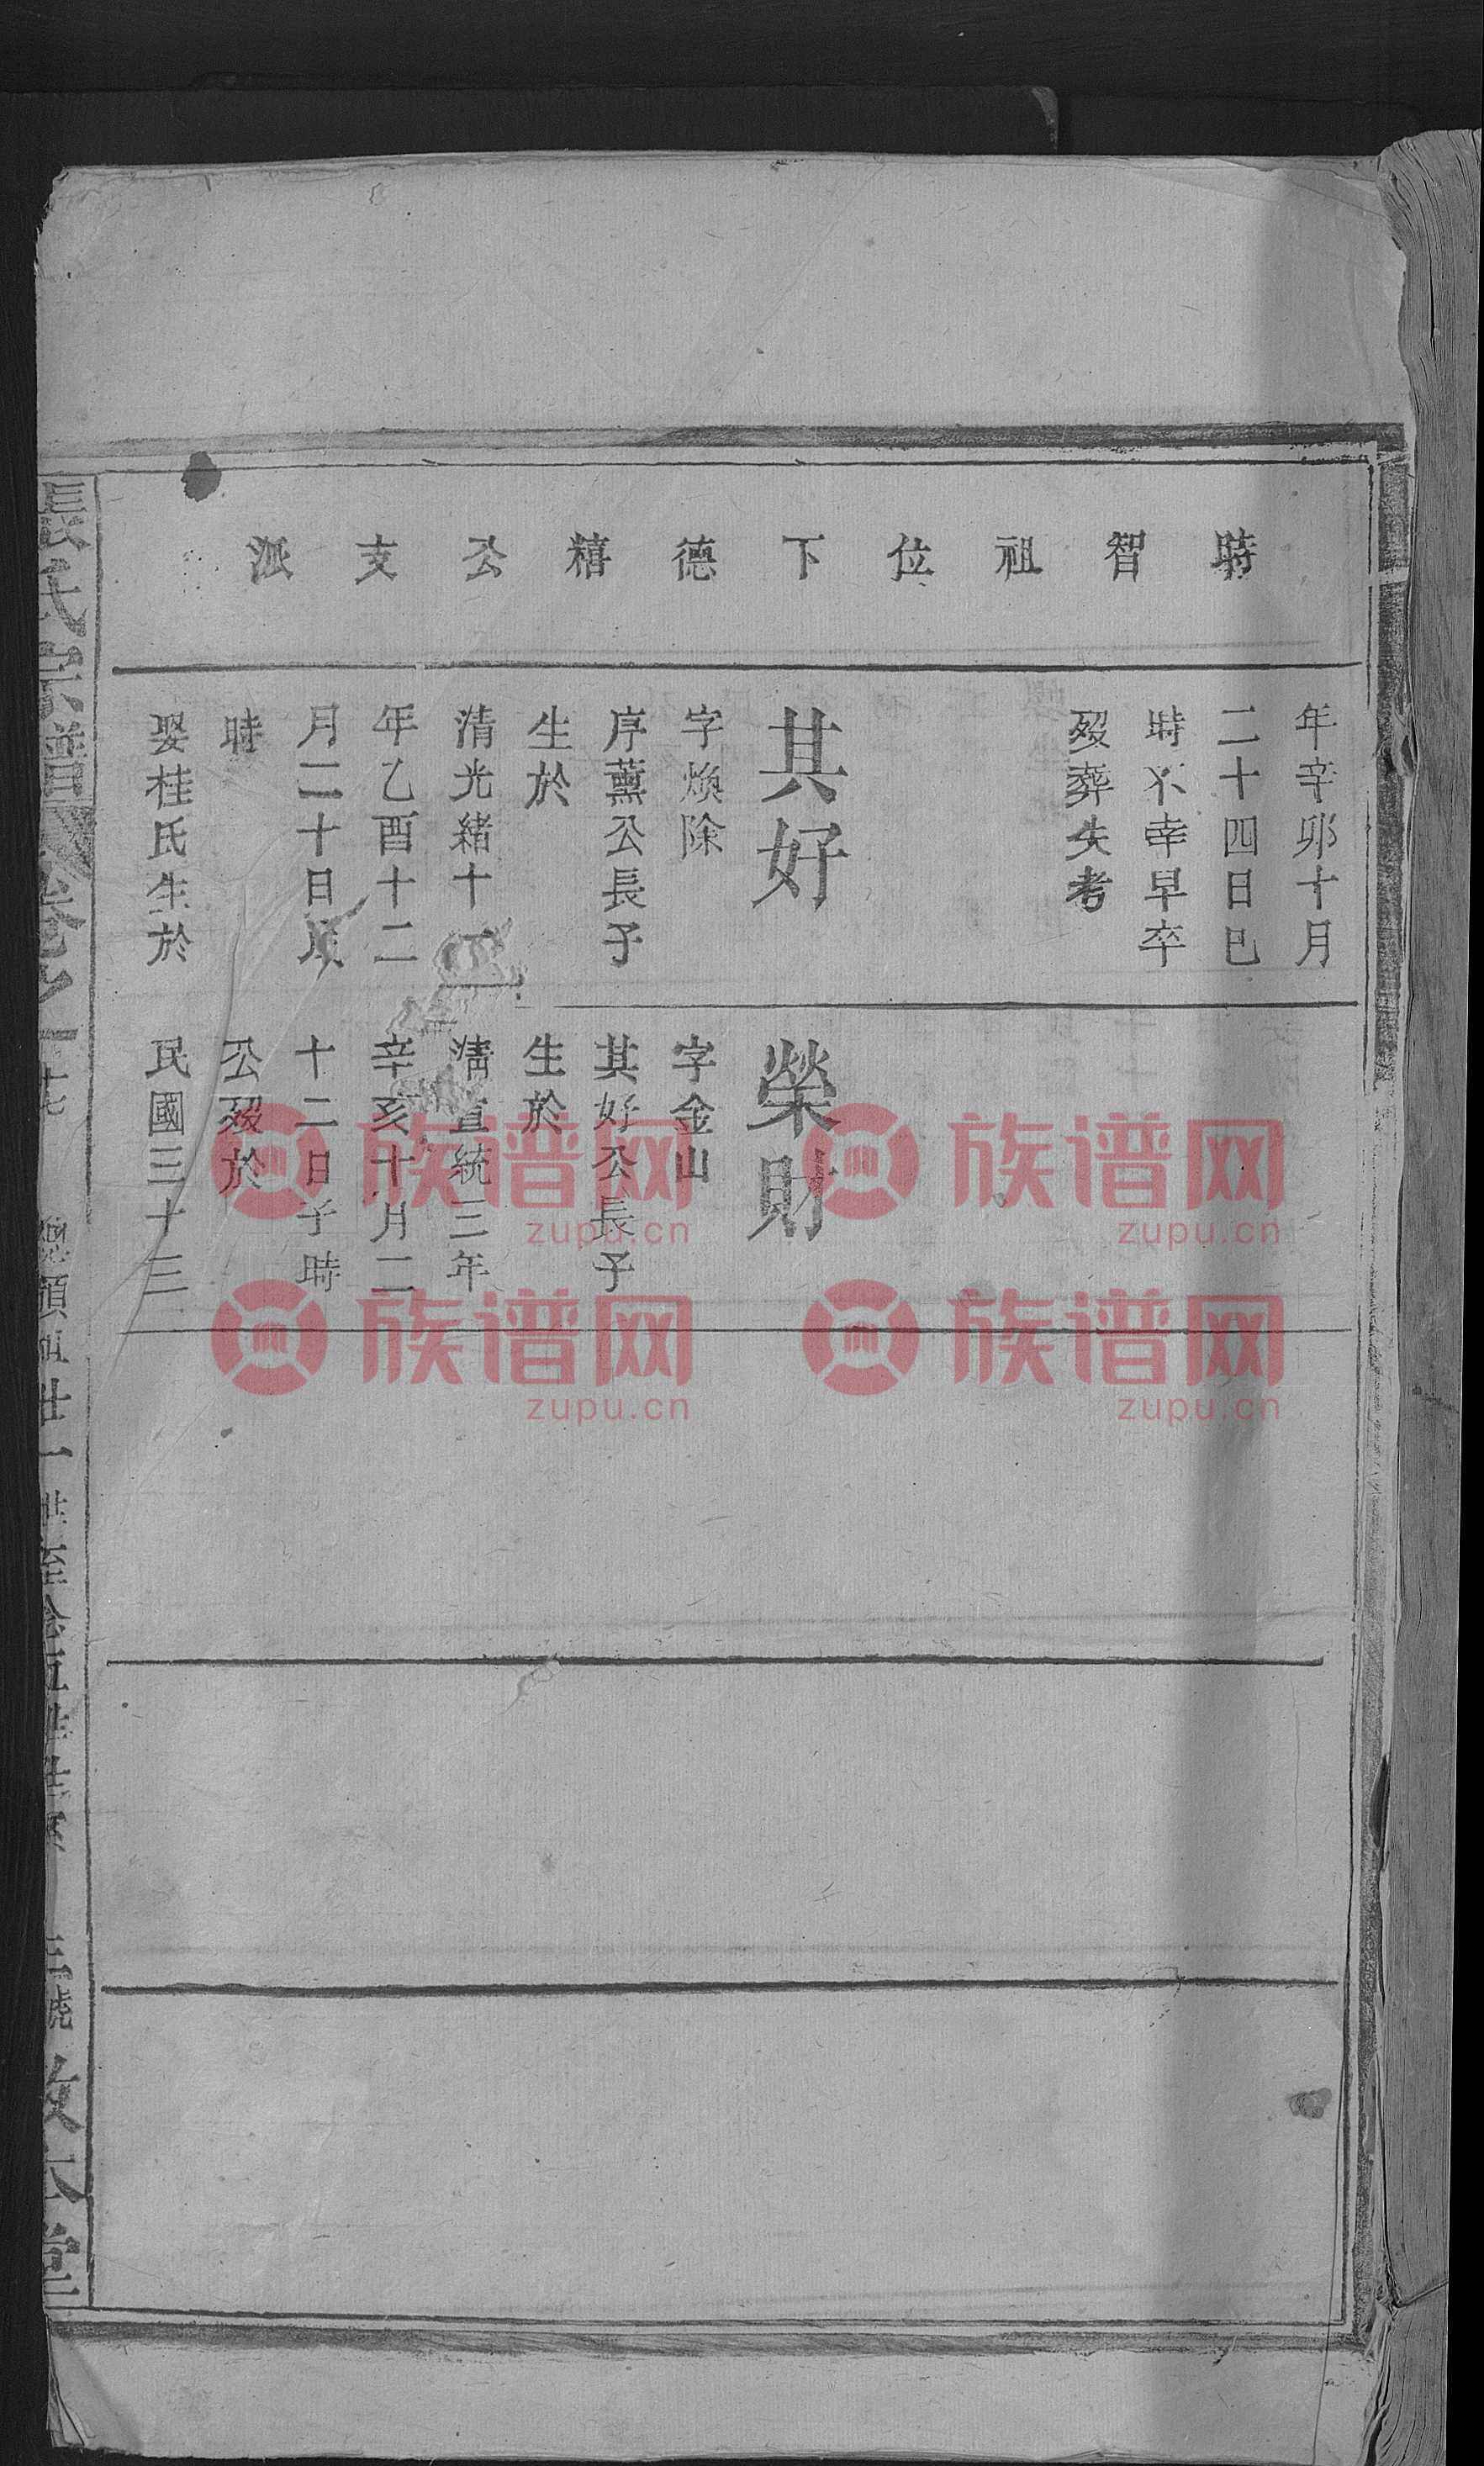 時智祖位下德糦公支派
年辛卯十月
二十四日巳
時不幸早卒
歿葬失考
其好
字煥除
序薰公長子
生於
清光緒十一
年乙酉十二
月二十日辰
時
娶桂氏生於
榮財
字金山
其好公長子
生於
清宣統三年
辛亥十月二
十二日子時
公歿於
民國三十三
張氏宗譜
卷之一
十七
敦本堂
族谱网
zupu.cn
族谱网
zupu.cn
族谱网
zupu.cn
族谱网
zupu.cn